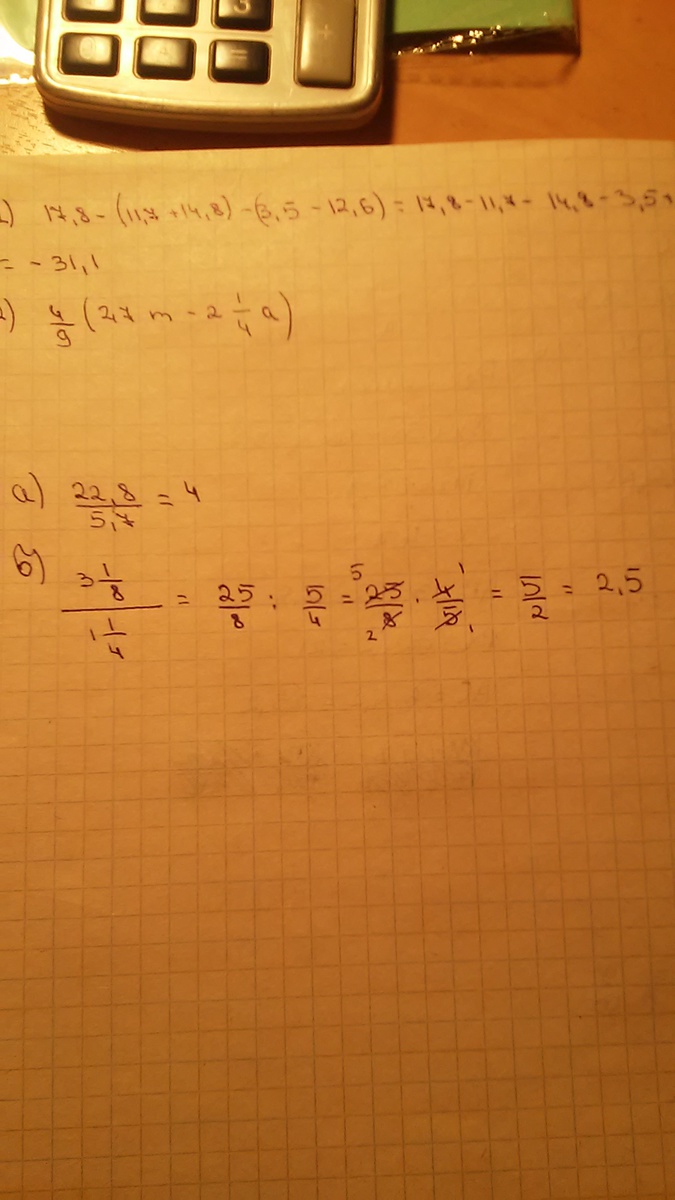 3
=
+
1) 17,8 - (11,7 + 14,8) - (3,5 - 12,6) = 17,8 - 11,7 - 14,8 - 3,5 +
= - 31,1
2) 4/9 (2,7 m - 2 1/4 a)
а) 22,8/5,7 = 4
б) 3 1/8 / 1 1/4 = 25/8 : 5/4 = 25/8 · 4/5 = 5/2 = 2,5